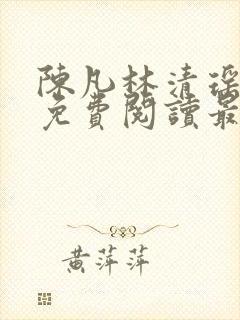 陳凡林清瑤
免費閱讀最
黃萍萍